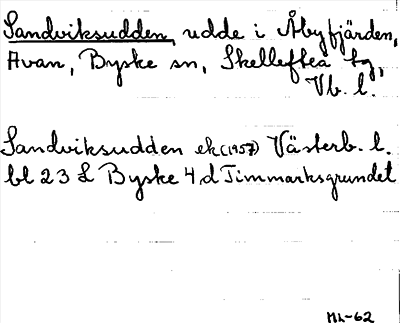 Sandviksudden, udde i Åbyfjärden,
Avan, Byske sn, Skellefteå tg,
Vb. l.
Sandviksudden ek (1957) Västerb. l.
bl 23 L Byske 4 d Timmarksgrundet
ML-62